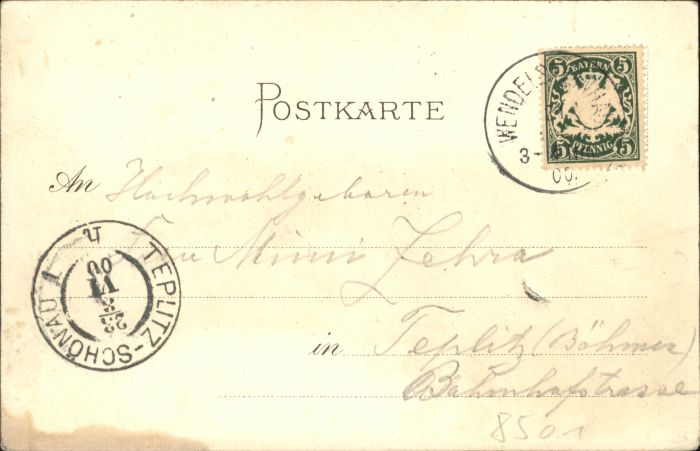 POSTKARTE
5 BAYERN 5
5 PFENNIG 5
WENDELS
3-
00.
An Hochwohlgeboren
Frau Mimi Zehra
TEPLITZ-SCHÖNAU 1
23
VI
00
in Teplitz (Böhmen)
Bahnhofstrasse
8501